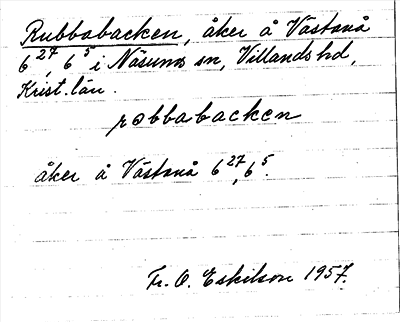 Rubbabacken, åker å Västanå
6²⁷, 6⁵ i Näsums sn, Villands hd,
Krist. län.
rəbbabacken
åker å Västanå 6²⁷, 6⁵.
Fr. O. Eskilson 1957.